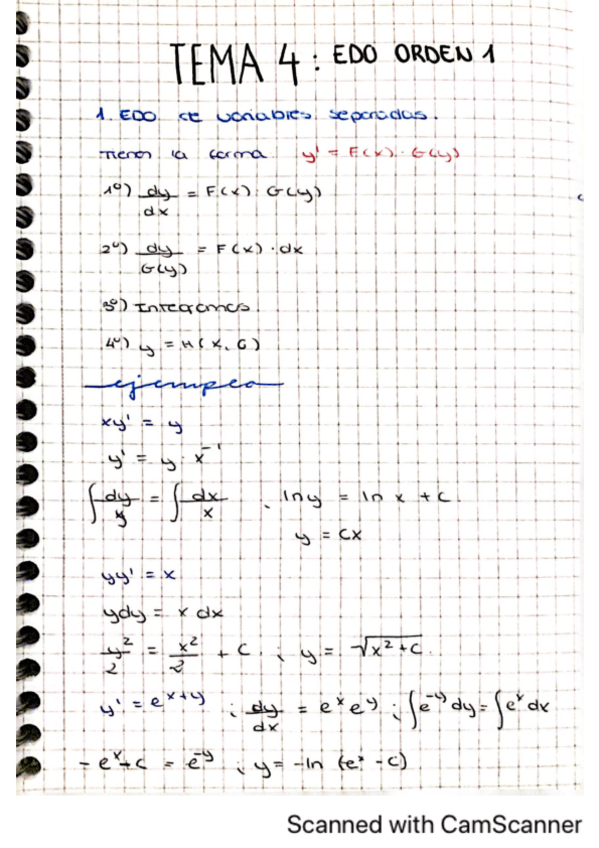 TEMA 4: EDO ORDEN 1
1. EDO de variables separadas.
Tienen la forma y' = F(x)·G(y)
1º) dy/dx = F(x)·G(y)
2º) dy/G(y) = F(x)·dx
3º) Integramos.
4º) y = H(x, C)
ejemplo
xy' = y
y' = y·x⁻¹
∫dy/y = ∫dx/x ; ln y = ln x + c.
y = cx
yy' = x
ydy = x dx
y²/2 = x²/2 + C ; y = √x²+C.
y' = eˣ⁺ʸ ; dy/dx = eˣ eʸ ; ∫e⁻ʸ dy = ∫eˣ dx
-eˣ+c = e⁻ʸ ; y = -ln (eˣ - C)
Scanned with CamScanner